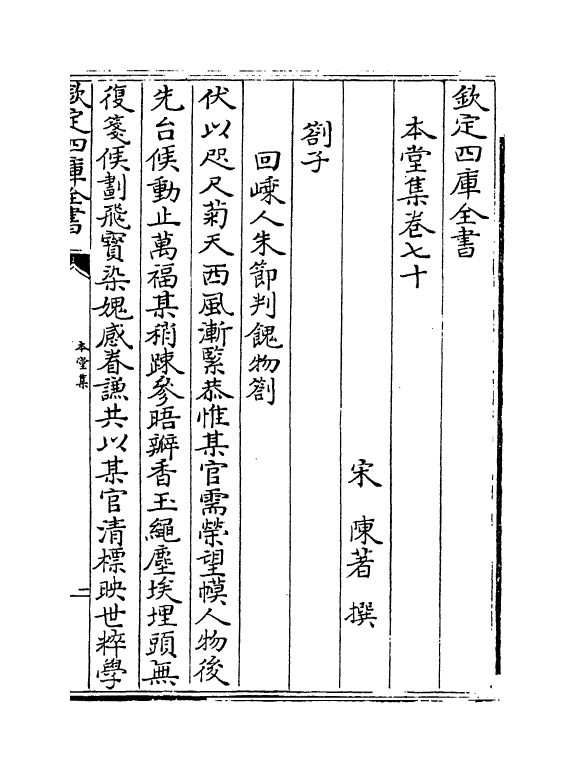 欽定四庫全書
本堂集卷七十
宋 陳著 撰
劄子
回嵊人朱節判餽物劄
伏以咫尺菊天西風漸緊恭惟某官需榮望幙人物後
先台候動止萬福某稍踈參晤瓣香玉繩塵埃埋頭無
復箋候劃飛寳染媿感眷謙共以某官清標映世粹學
欽定四庫全書
本堂集
一